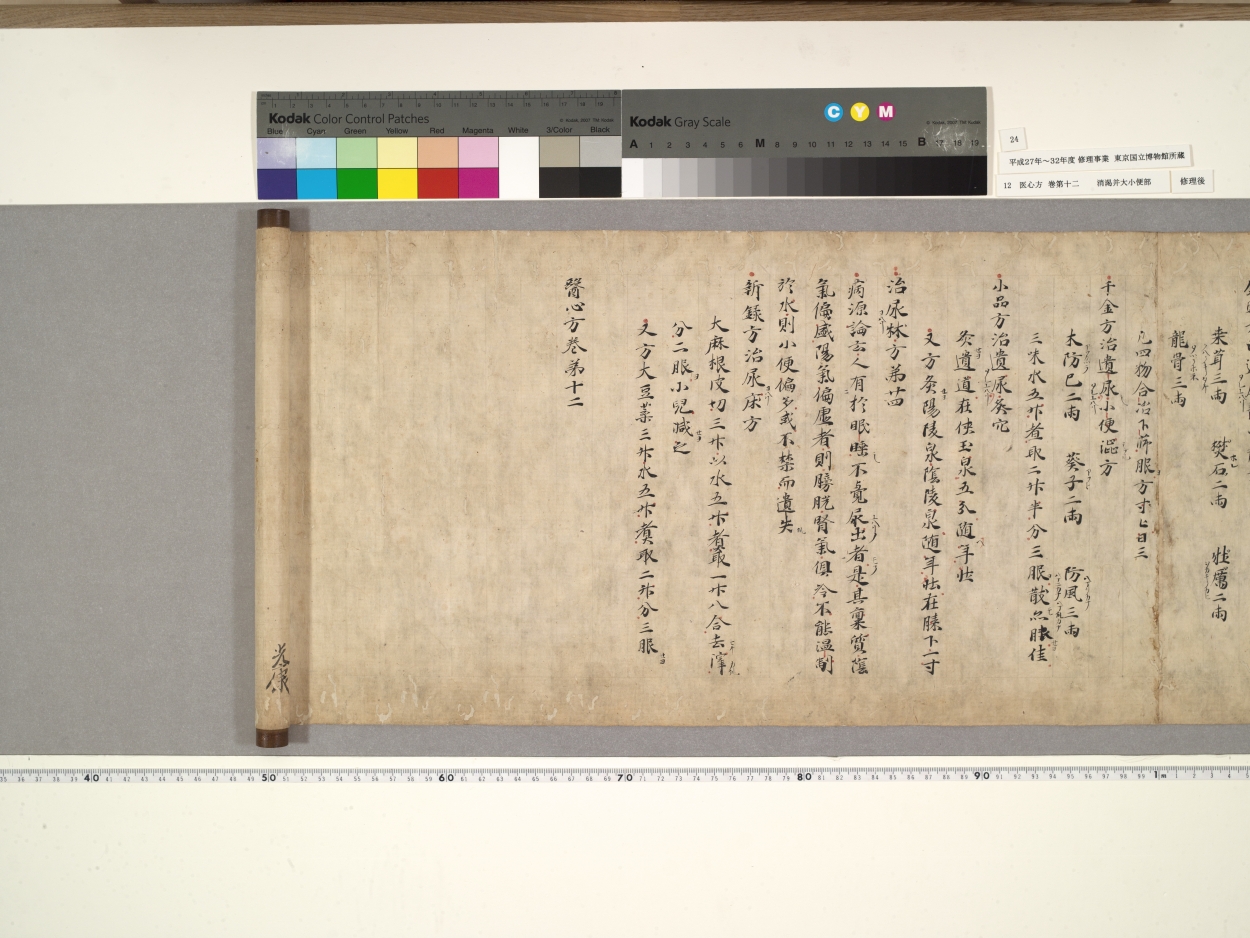 Kodak Color Control Patches
Blue Cyan Green Yellow Red Magenta White 3/Color Black
Kodak Gray Scale
C Y M
A 1 2 3 4 5 6 M 8 9 10 11 12 13 14 15 B 17 18 19
24
平成27年～32年度 修理事業 東京国立博物館所蔵
12 医心方 巻第十二 消渇并大小便部
修理後
桒茸三両 樊石二両 牡蠣二両
龍骨三両
凡四物合冶下篩服方寸匕日三
千金方治遺尿小便澀方
木防已二両 葵子二両 防風三両
三味水五升煮取二升半分三服散亦佳
小品方治遺尿灸穴
灸遺道在侠玉泉五分随年壮
又方灸陽陵泉陰陵泉随年壮在膝下一寸
治尿牀方第廿四
病源論云人有於眠睡不覺尿出者是其禀質陰
氣偏盛陽氣偏虚者則膀胱腎氣俱冷不能温制
於水則小便偏多或不禁而遺失
新録方治尿床方
大麻根皮切三升以水五升煮取一升八合去滓
分二服小兒減之
又方大豆葉三升水五升煮取二升分三服
醫心方卷第十二
40 50 60 70 80 90 1m